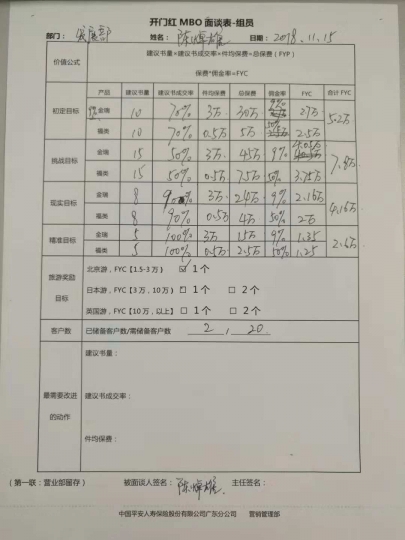 开门红 MBO 面谈表-组员
部门： 发展部 姓名： 陈焯雄 日期： 2018.11.15
价值公式
建议书量×建议书成交率×件均保费=总保费（FYP）
保费*佣金率=FYC
产品 建议书量 建议书成交率 件均保费 总保费 佣金率 FYC 合计 FYC
初定目标 金瑞 10 70% 3万 30万 9% 2.7万 5.2万
福类 10 70% 0.5万 5万 2.5万
挑战目标 金瑞 15 50% 3万 45万 9% 4.05万 7.8万
福类 15 50% 0.5万 7.5万 50% 3.75万
现实目标 金瑞 8 90% 3万 24万 9% 2.16万 4.16万
福类 8 90% 0.5万 4万 50% 2万
精准目标 金瑞 5 100% 3万 15万 9% 1.35 2.6万
福类 5 100% 0.5万 2.5万 50% 1.25
旅游奖励
目标
北京游，FYC【1.5-3 万】 ☑ 1个
日本游，FYC【3 万，10 万】 □ 1个 □ 2个
英国游，FYC【10 万，以上】 □ 1个 □ 2个
客户数 已储备客户数/需储备客户数 2，20
最需要改进
的动作
建议书量：
建议书成交率：
件均保费：
（第一联：营业部留存） 被面谈人签名： 陈焯雄 主任签名：
中国平安人寿保险股份有限公司广东分公司 营销管理部